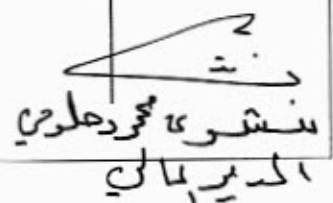 نشوى محمود حلومي
المدير المالي